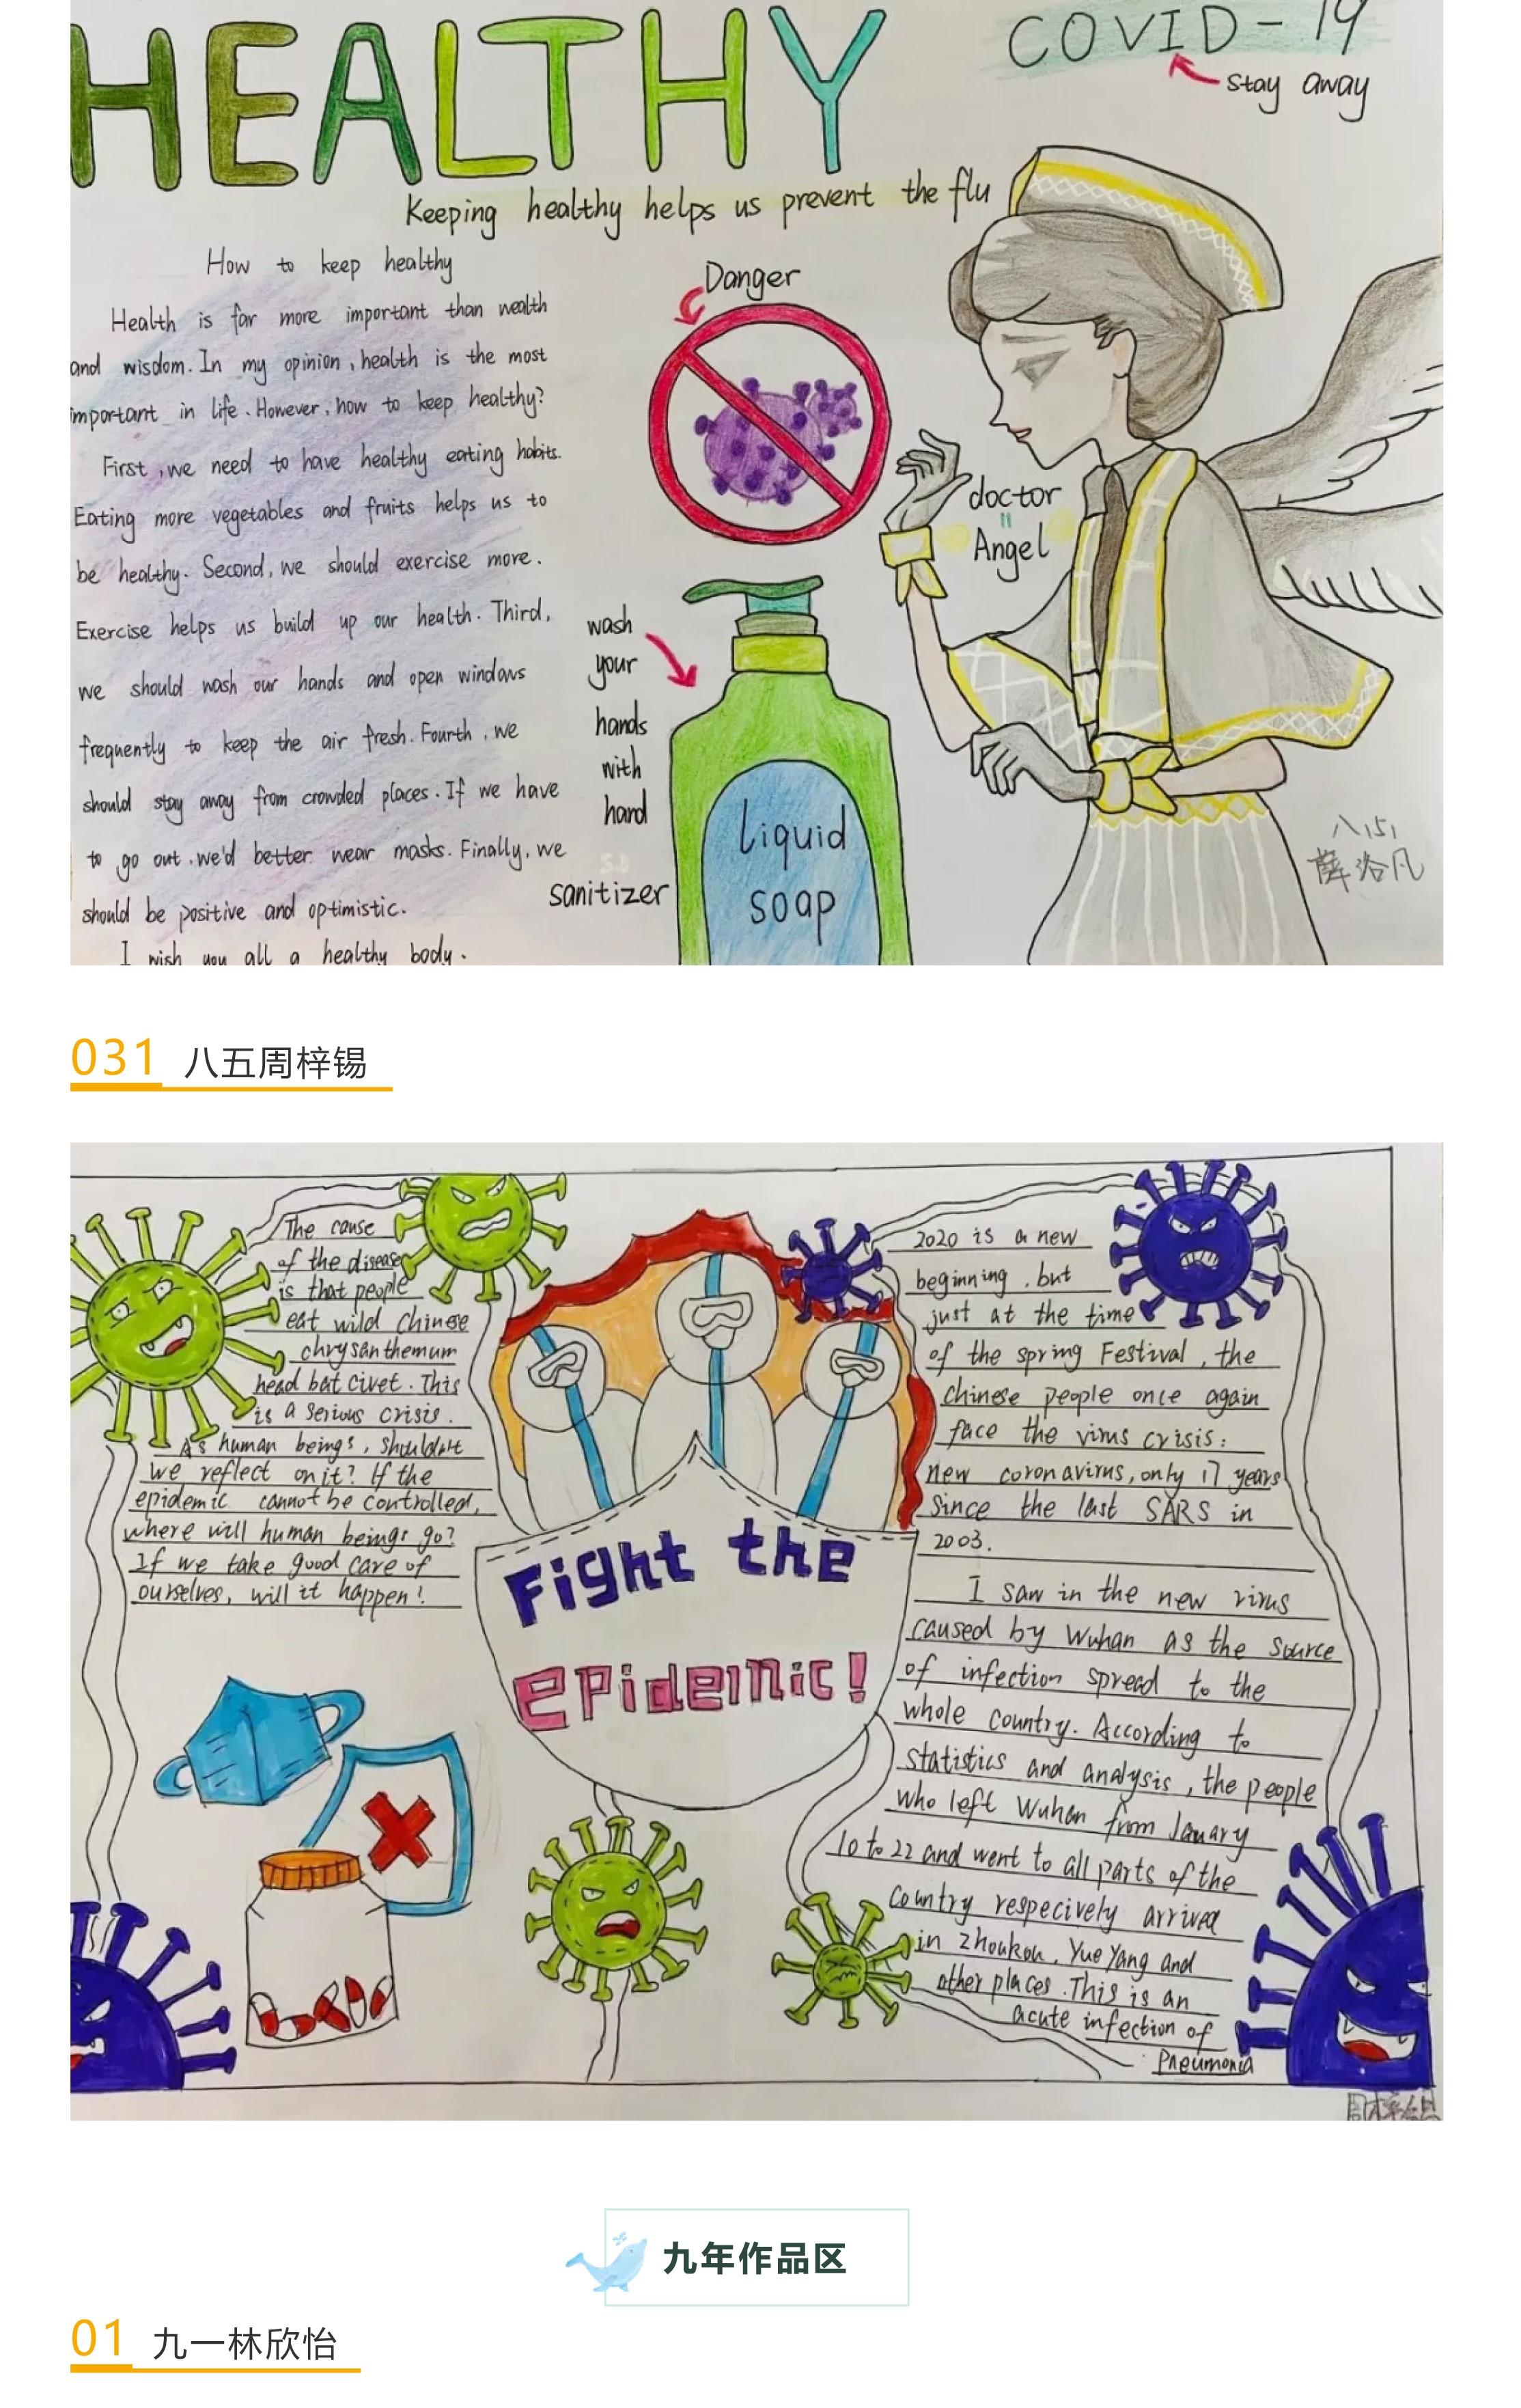 HEALTHY
COVID-19
stay away
Keeping healthy helps us prevent the flu
How to keep healthy
Health is far more important than wealth
and wisdom. In my opinion, health is the most
important in life. However, how to keep healthy?
First, we need to have healthy eating habits.
Eating more vegetables and fruits helps us to
be healthy. Second, we should exercise more.
Exercise helps us build up our health. Third,
we should wash our hands and open windows
frequently to keep the air fresh. Fourth, we
should stay away from crowded places. If we have
to go out, we'd better wear masks. Finally, we
should be positive and optimistic.
I wish you all a healthy body.
Danger
doctor
=
Angel
wash
your
hands
with
hard
sanitizer
liquid
soap
八(5)
薛洛凡
031 八五周梓锡
The cause
of the disease
is that people
eat wild Chinese
chrysanthemum
head bat civet. This
is a serious crisis.
As human beings, shouldn't
we reflect on it? If the
epidemic cannot be controlled,
where will human beings go?
If we take good care of
ourselves, will it happen!
Fight the
Epidemic!
2020 is a new
beginning, but
just at the time
of the spring Festival, the
chinese people once again
face the virus crisis:
new coronavirus, only 17 years
since the last SARS in
2003.
I saw in the new virus
caused by Wuhan as the source
of infection spread to the
whole country. According to
statistics and analysis, the people
who left Wuhan from Janury
10 to 22 and went to all parts of the
country respecively arrived
in Zhoukou, Yue Yang and
other places. This is an
acute infection of
Pneumonia
周梓锡
九年作品区
01 九一林欣怡